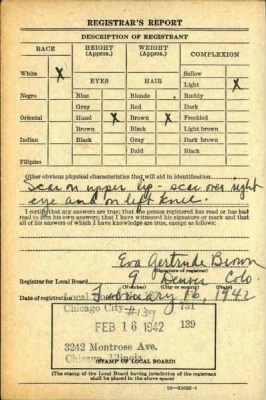 REGISTRAR'S REPORT
DESCRIPTION OF REGISTRANT
RACE
HEIGHT (Approx.)
WEIGHT (Approx.)
COMPLEXION
White X
Sallow
EYES
HAIR
Light X
Negro
Blue
Blonde
Ruddy
Gray
Red
Dark
Oriental
Hazel X
Brown X
Freckled
Brown
Black
Light brown
Indian
Black
Gray
Dark brown
Bald
Black
Filipino
Other obvious physical characteristics that will aid in identification
Scar on upper lip - scar over right
eye and on left knee.
I certify that my answers are true; that the person registered has read or has had
read to him his own answers; that I have witnessed his signature or mark and that
all of his answers of which I have knowledge are true, except as follows:
Eva Gertrude Brown
(Signature of registrar)
Registrar for Local Board 9 Denver Colo.
(Number) (City or county) (State)
Date of registration February 16, 1942
Chicago City #139 751
FEB 16 1942 139
3242 Montrose Ave.
Chicago, Illinois
(STAMP OF LOCAL BOARD)
(The stamp of the Local Board having jurisdiction of the registrant
shall be placed in the above space)